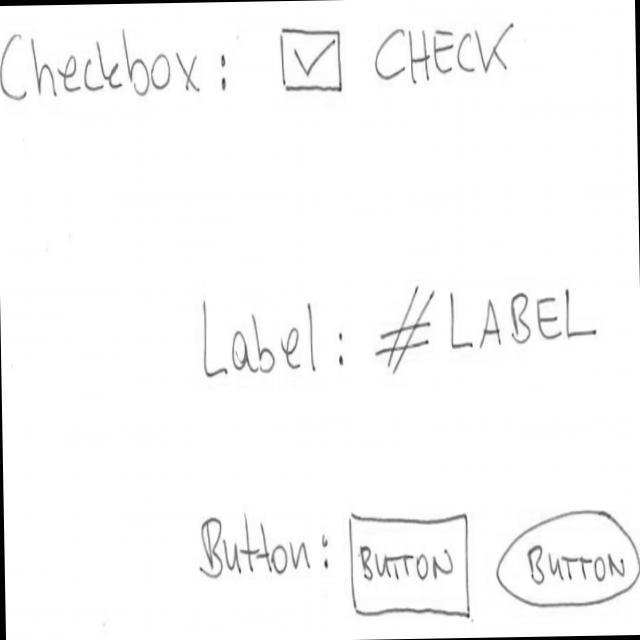 Checkbox: ☑ CHECK
Label: #LABEL
Button: BUTTON BUTTON